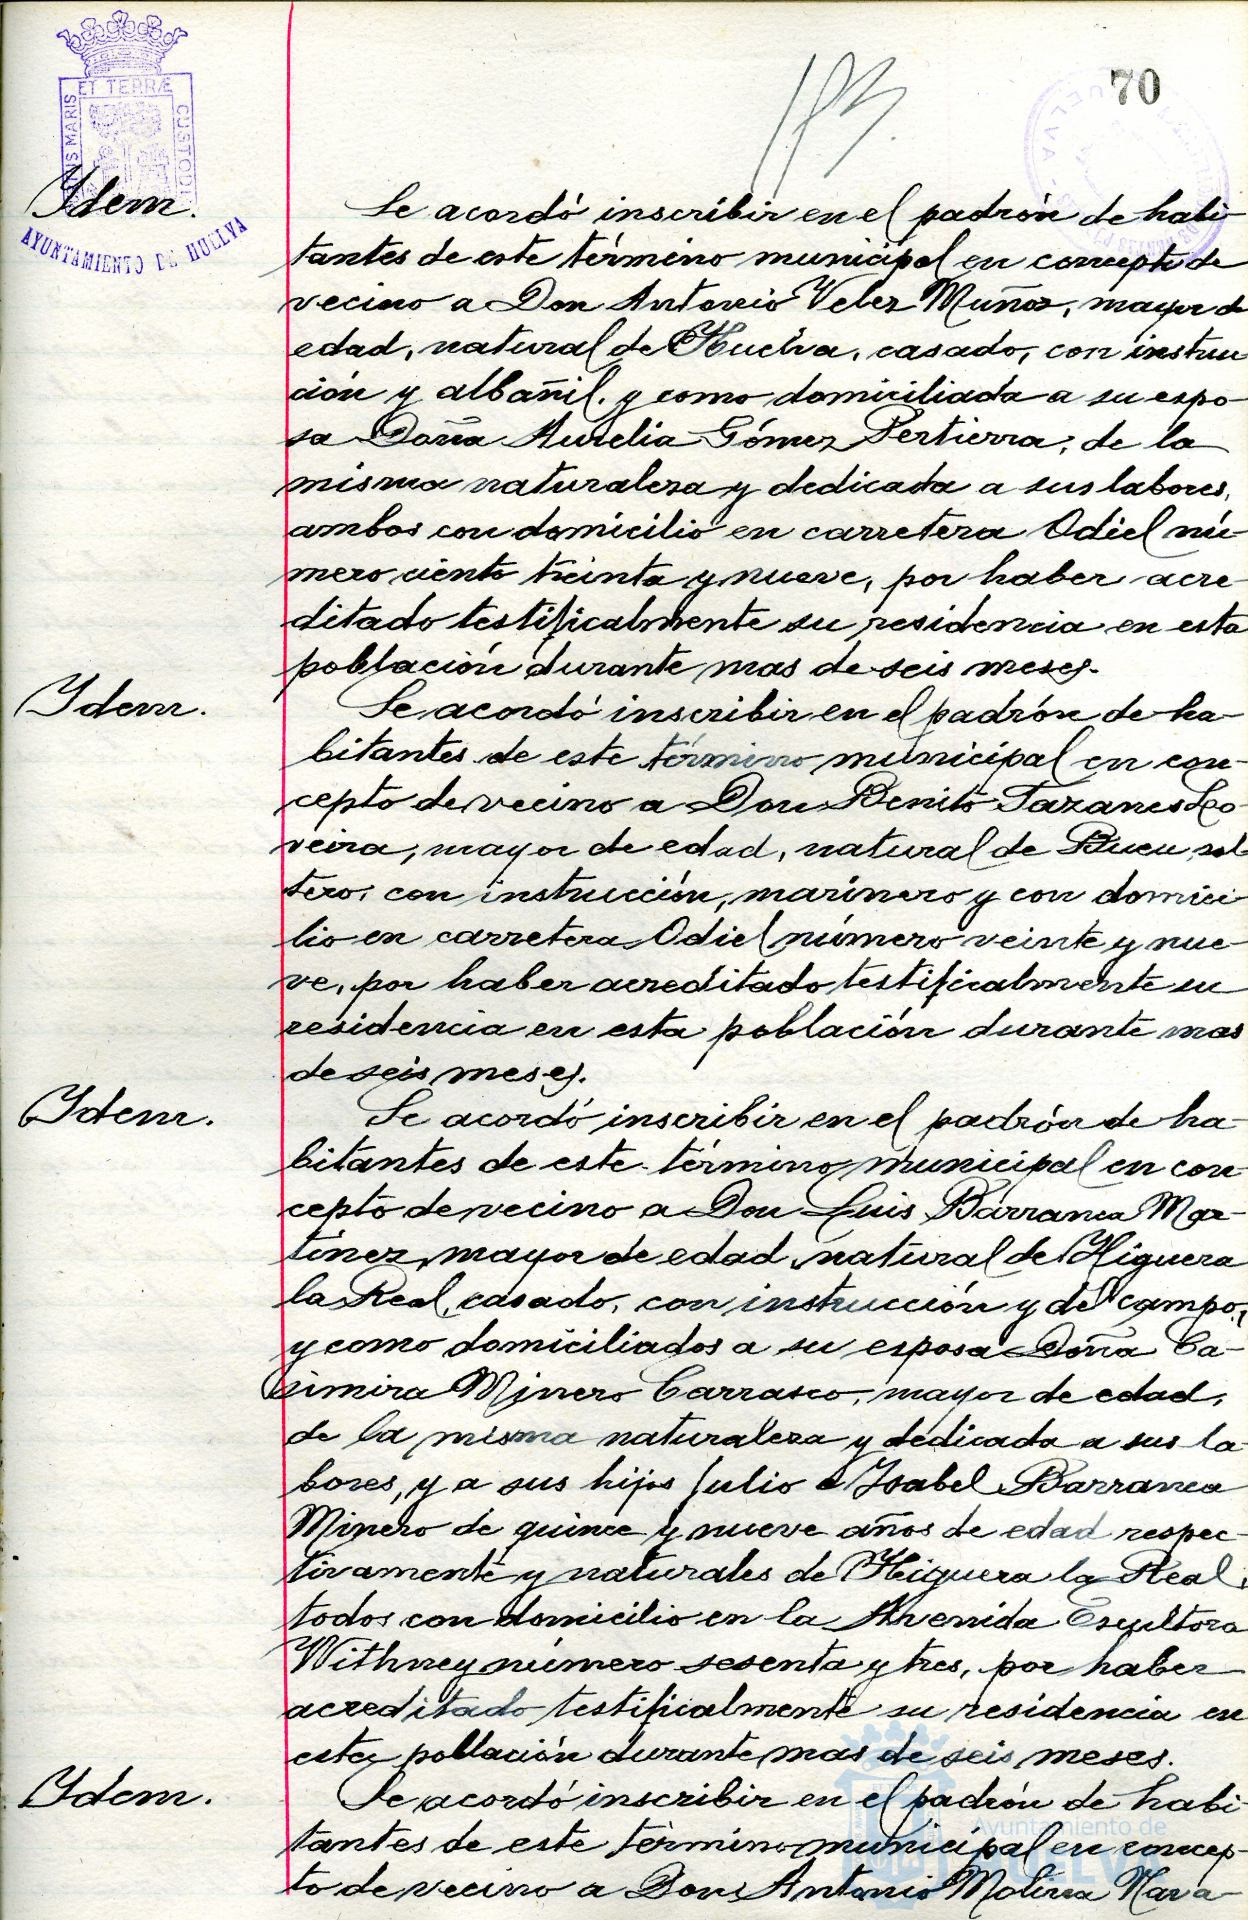 70
ET TERRÆ
CUSTODI
MARIS
AYUNTAMIENTO DE HUELVA
Ydem.
Se acordó inscribir en el padrón de habi-
tantes de este término municipal en concepto de
vecino a Don Antonio Velez Muñoz, mayor de
edad, natural de Huelva, casado, con instruc-
ción y albañil. y como domiciliada a su espo-
sa Doña Aurelia Gómez Pertierra; de la
misma naturaleza y dedicada a sus labores,
ambos con domicilio en carretera Odiel nú-
mero ciento treinta y nueve, por haber acre-
ditado testificalmente su residencia en esta
población durante mas de seis meses.
Ydem.
Se acordó inscribir en el padrón de ha-
bitantes de este término municipal en con-
cepto de vecino a Don Benito Tazanes Lo-
veira, mayor de edad, natural de Bueu, sol-
tero, con instrucción, marinero y con domici-
lio en carretera Odiel número veinte y nue-
ve, por haber acreditado testificalmente su
residencia en esta población durante mas
de seis meses.
Ydem.
Se acordó inscribir en el padrón de ha-
bitantes de este término municipal en con-
cepto de vecino a Don Luis Barranca Mar-
tínez, mayor de edad, natural de Higuera
la Real, casado, con instrucción y del campo,
y como domiciliados a su esposa Doña Ca-
simira Minero Carrasco, mayor de edad,
de la misma naturaleza y dedicada a sus la-
bores, y a sus hijos Julio e Isabel Barranca
Minero de quince y nueve años de edad respec-
tivamente y naturales de Higuera la Real,
todos con domicilio en la Avenida Escultora
Withney número sesenta y tres, por haber
acreditado testificalmente su residencia en
esta población durante mas de seis meses.
Ydem.
Se acordó inscribir en el padrón de habi-
tantes de este término municipal en concep-
to de vecino a Don Antonio Molina Nava-
Ayuntamiento de
HUELVA